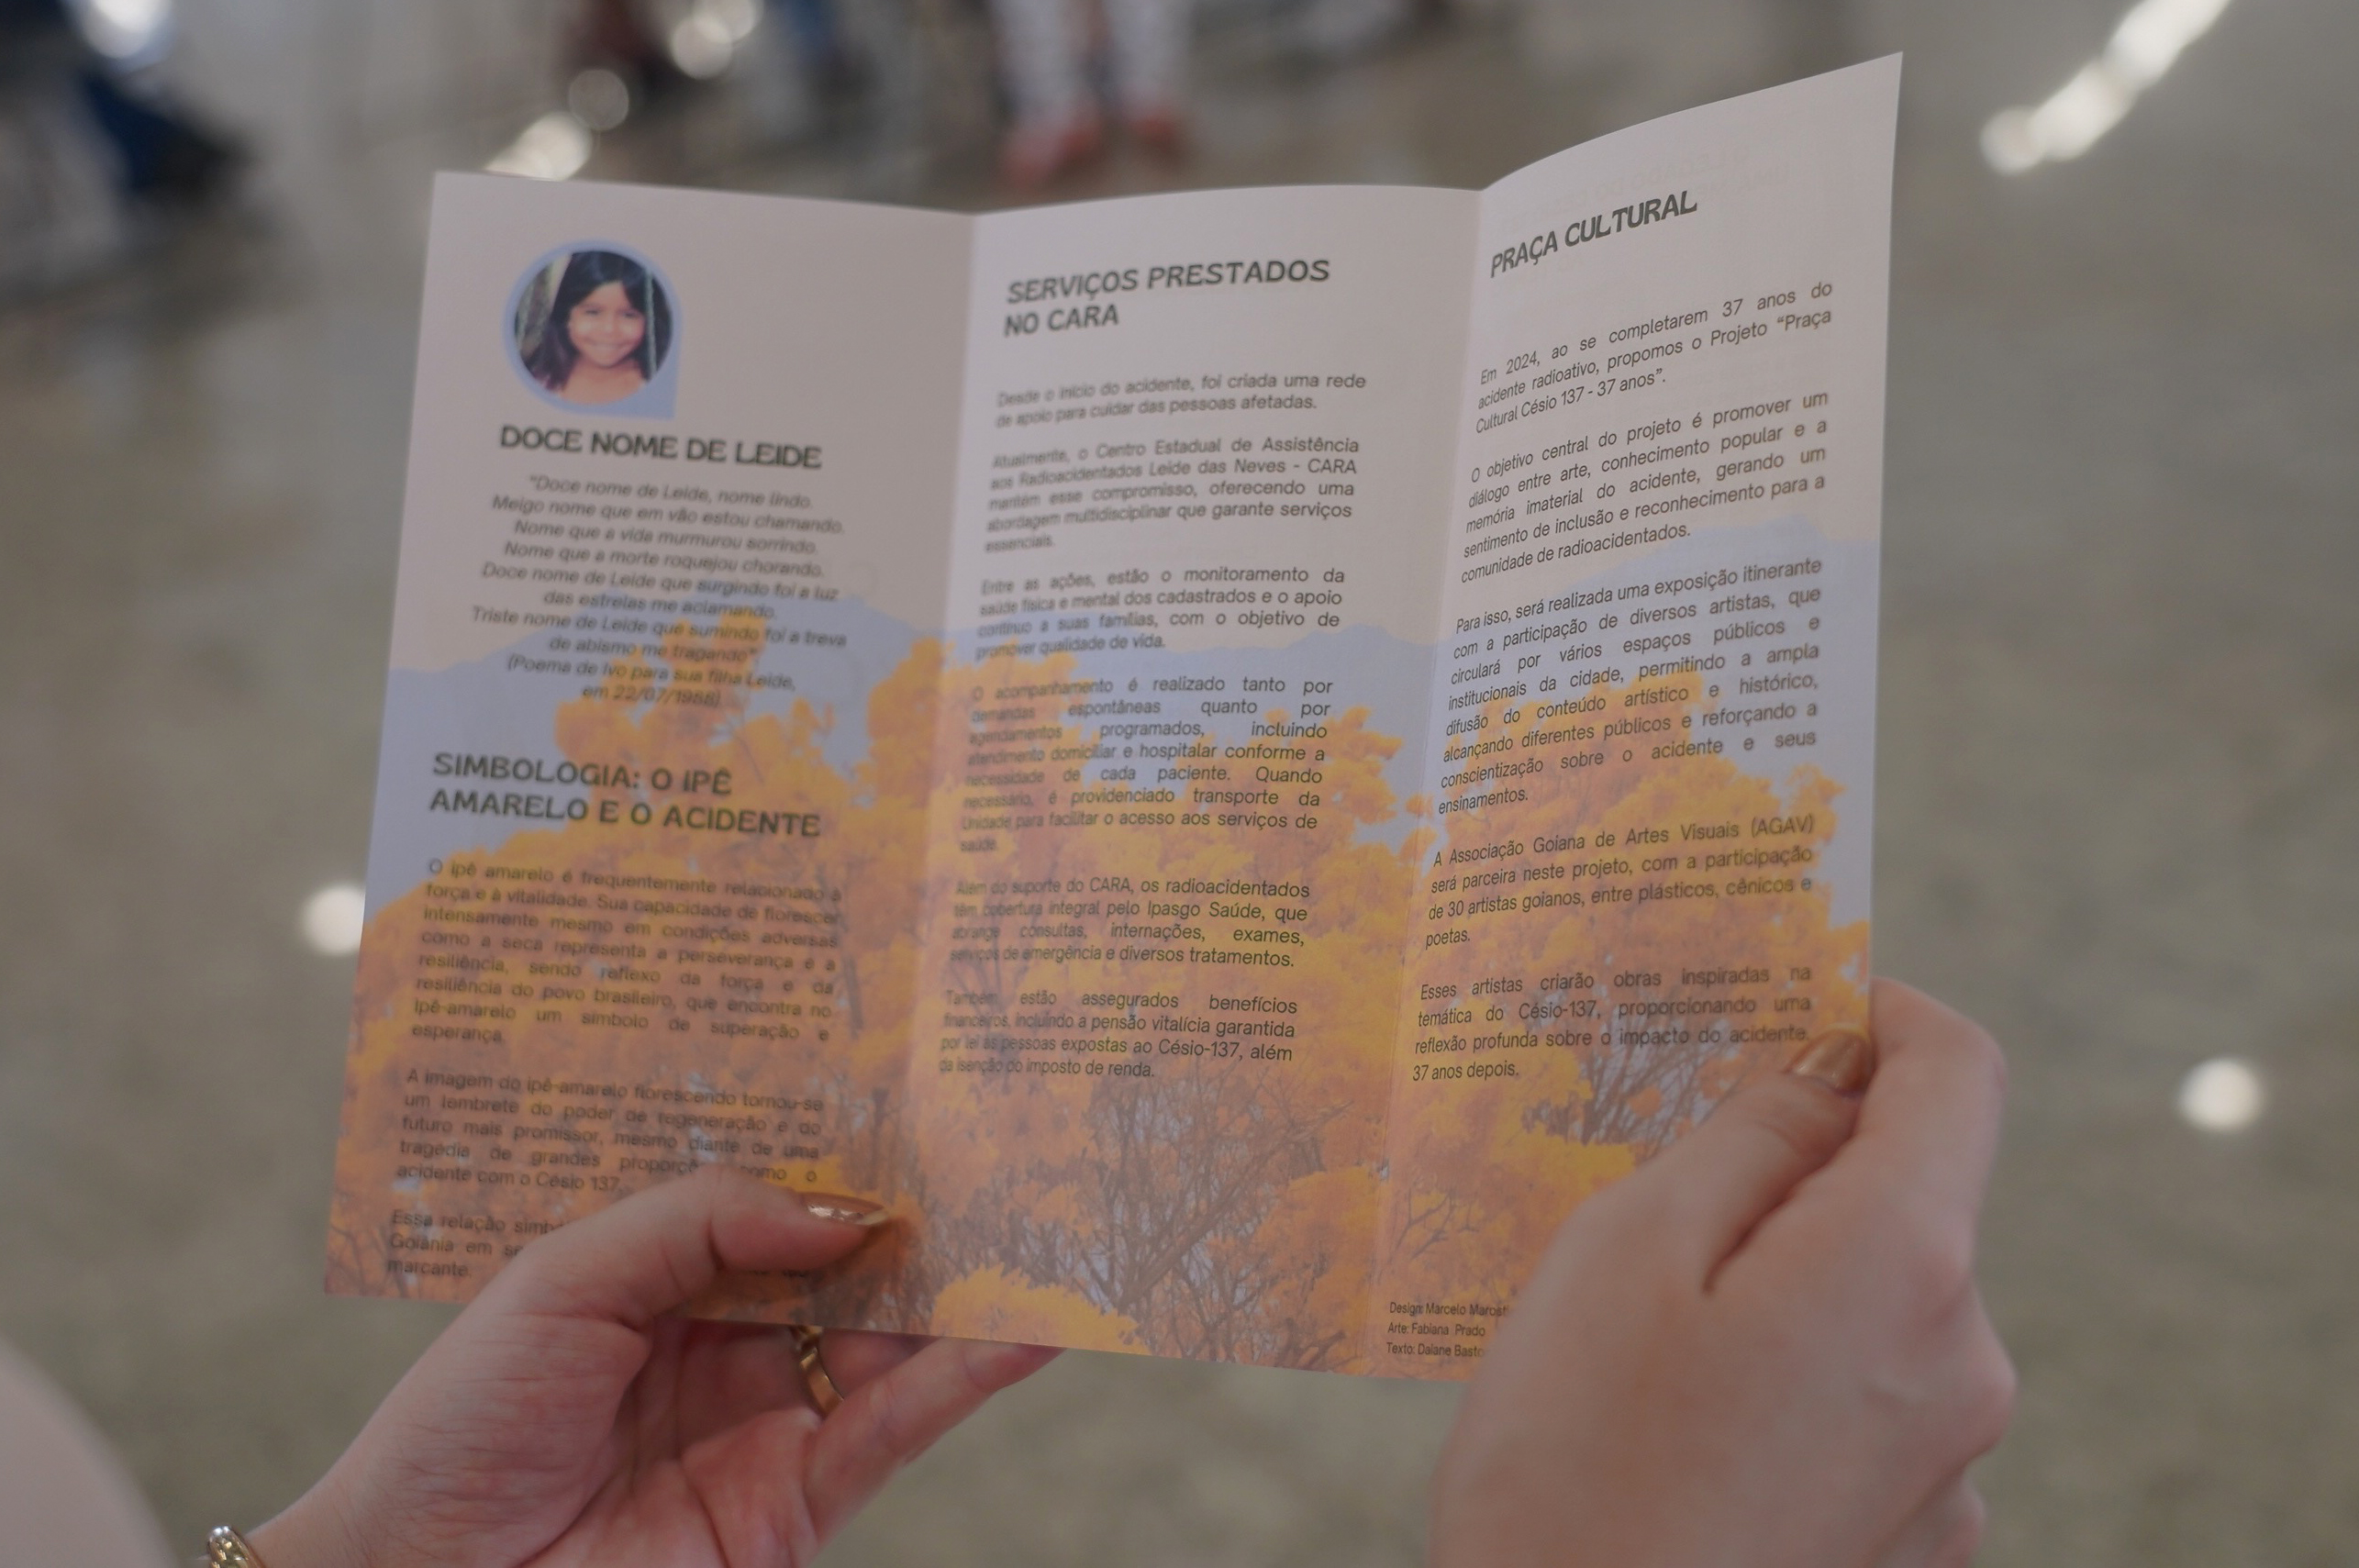 DOCE NOME DE LEIDE
"Doce nome de Leide, nome lindo.
Meigo nome que em vão estou chamando.
Nome que a vida murmurou sorrindo.
Nome que a morte roquejou chorando.
Doce nome de Leide que surgindo foi a luz
das estrelas me aclamando.
Triste nome de Leide que sumindo foi a treva
de abismo me tragando".
(Poema de Ivo para sua filha Leide,
em 22/07/1988)
SIMBOLOGIA: O IPÊ
AMARELO E O ACIDENTE
O ipê amarelo é frequentemente relacionado à
força e à vitalidade. Sua capacidade de florescer
intensamente mesmo em condições adversas
como a seca representa a perseverança e a
resiliência, sendo reflexo da força e da
resiliência do povo brasileiro, que encontra no
Ipê-amarelo um símbolo de superação e
esperança.
A imagem do ipê-amarelo florescendo tornou-se
um lembrete do poder de regeneração e do
futuro mais promissor, mesmo diante de uma
tragédia de grandes como o
acidente com o Césio 137.
Essa relação
Goiânia em
marcante.
SERVIÇOS PRESTADOS
NO CARA
Desde o início do acidente, foi criada uma rede
de apoio para cuidar das pessoas afetadas.
Atualmente, o Centro Estadual de Assistência
aos Radioacidentados Leide das Neves - CARA
mantém esse compromisso, oferecendo uma
abordagem multidisciplinar que garante serviços
essenciais.
Entre as ações, estão o monitoramento da
saúde física e mental dos cadastrados e o apoio
contínuo a suas famílias, com o objetivo de
promover qualidade de vida.
O acompanhamento é realizado tanto por
demandas espontâneas quanto por
agendamentos programados, incluindo
atendimento domiciliar e hospitalar conforme a
necessidade de cada paciente. Quando
necessário, é providenciado transporte da
Unidade para facilitar o acesso aos serviços de
saúde.
Além do suporte do CARA, os radioacidentados
têm cobertura integral pelo Ipasgo Saúde, que
abrange consultas, internações, exames,
serviços de emergência e diversos tratamentos.
Também estão assegurados benefícios
financeiros, incluindo a pensão vitalícia garantida
por lei às pessoas expostas ao Césio-137, além
da isenção do imposto de renda.
PRAÇA CULTURAL
Em 2024, ao se completarem 37 anos do
acidente radioativo, propomos o Projeto "Praça
Cultural Césio 137 - 37 anos".
O objetivo central do projeto é promover um
diálogo entre arte, conhecimento popular e a
memória imaterial do acidente, gerando um
sentimento de inclusão e reconhecimento para a
comunidade de radioacidentados.
Para isso, será realizada uma exposição itinerante
com a participação de diversos artistas, que
circulará por vários espaços públicos e
institucionais da cidade, permitindo a ampla
difusão do conteúdo artístico e histórico,
alcançando diferentes públicos e reforçando a
conscientização sobre o acidente e seus
ensinamentos.
A Associação Goiana de Artes Visuais (AGAV)
será parceira neste projeto, com a participação
de 30 artistas goianos, entre plásticos, cênicos e
poetas.
Esses artistas criarão obras inspiradas na
temática do Césio-137, proporcionando uma
reflexão profunda sobre o impacto do acidente,
37 anos depois.
Design: Marcelo
Arte: Fabiana Prado
Texto: Daiane